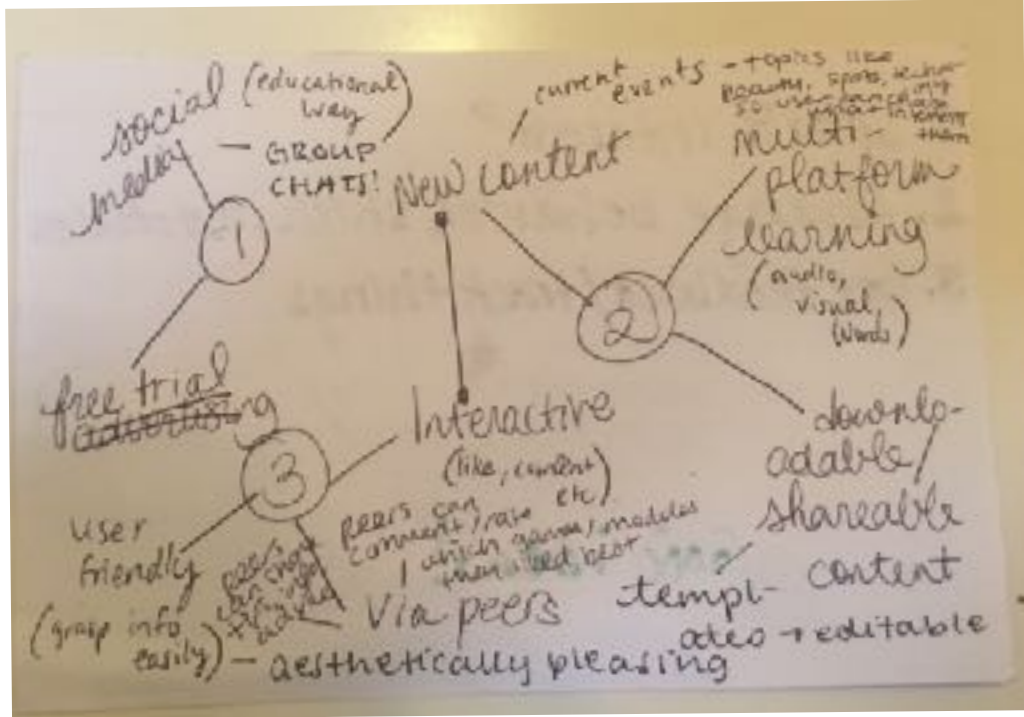 social
media
(educational
way)
— GROUP
CHATS!
1
free trial
advertising
current
events - topics like
beauty, sports,
them
New content
multi-
platform
learning
(audio,
visual,
words)
2
downlo-
adable/
shareable
content
templ-
ates → editable
Interactive
(like, comment
etc)
peers can
comment/rate
which games/modules
they liked best
3
user
friendly
(grasp info
easily) — aesthetically pleasing
via peers